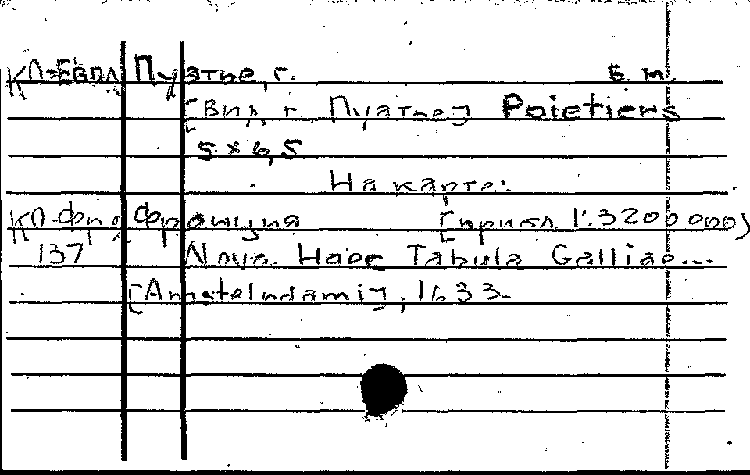 КП-Евпл Пуатье, г. Б. м.
[Вид г. Пуатье] Poietiers
5 × 6,5
На карте:
КП-Фр Франция [прибл. 1:3200 000]
137 Nova Haec Tabula Galliae...
[Amstelodami], 1633.